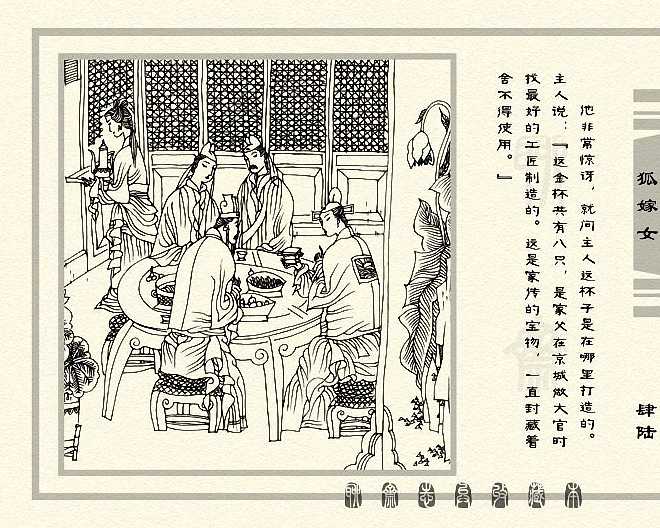 他非常惊讶，就问主人这杯子是在哪里打造的。
主人说：“这金杯共有八只，是家父在京城做大官时
找最好的工匠制造的。这是家传的宝物，一直封藏着
舍不得使用。”
狐嫁女
肆陆